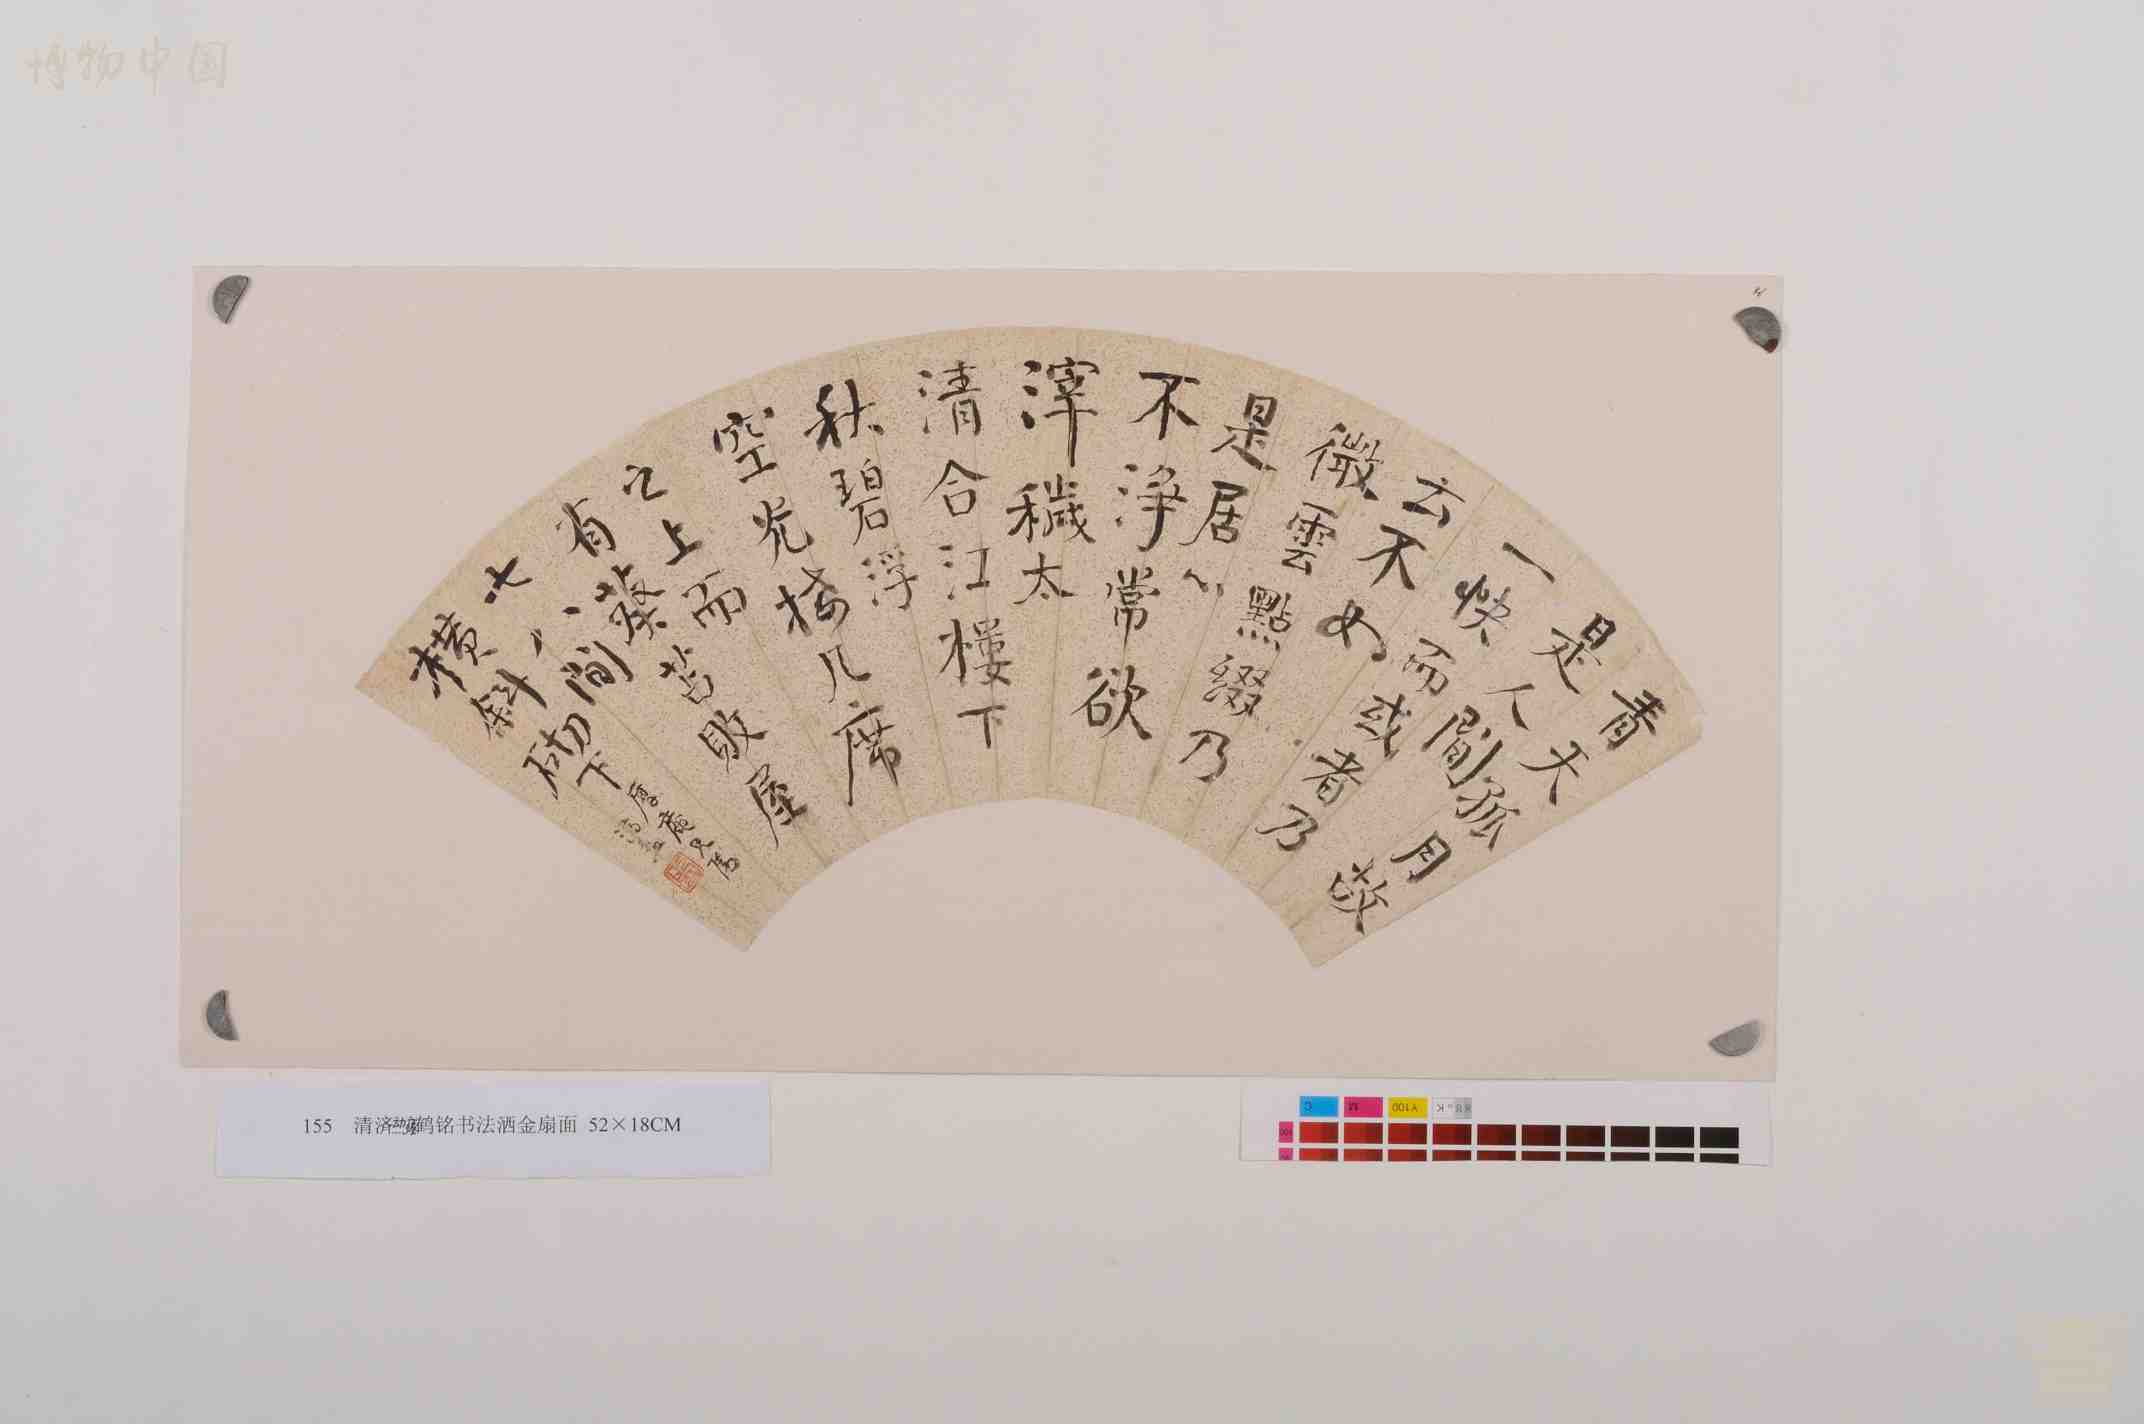 博物中国
青天孤月故
是人間
一快而或者乃
云不如
微雲點綴乃
是居心
不淨常欲
滓穢太
清合江樓下
秋碧浮
空光搖几席
之上而
有葵苫敗屋
七八間
橫斜砌下
155 清济鹤铭书法洒金扇面 52×18CM
C M Y100 K